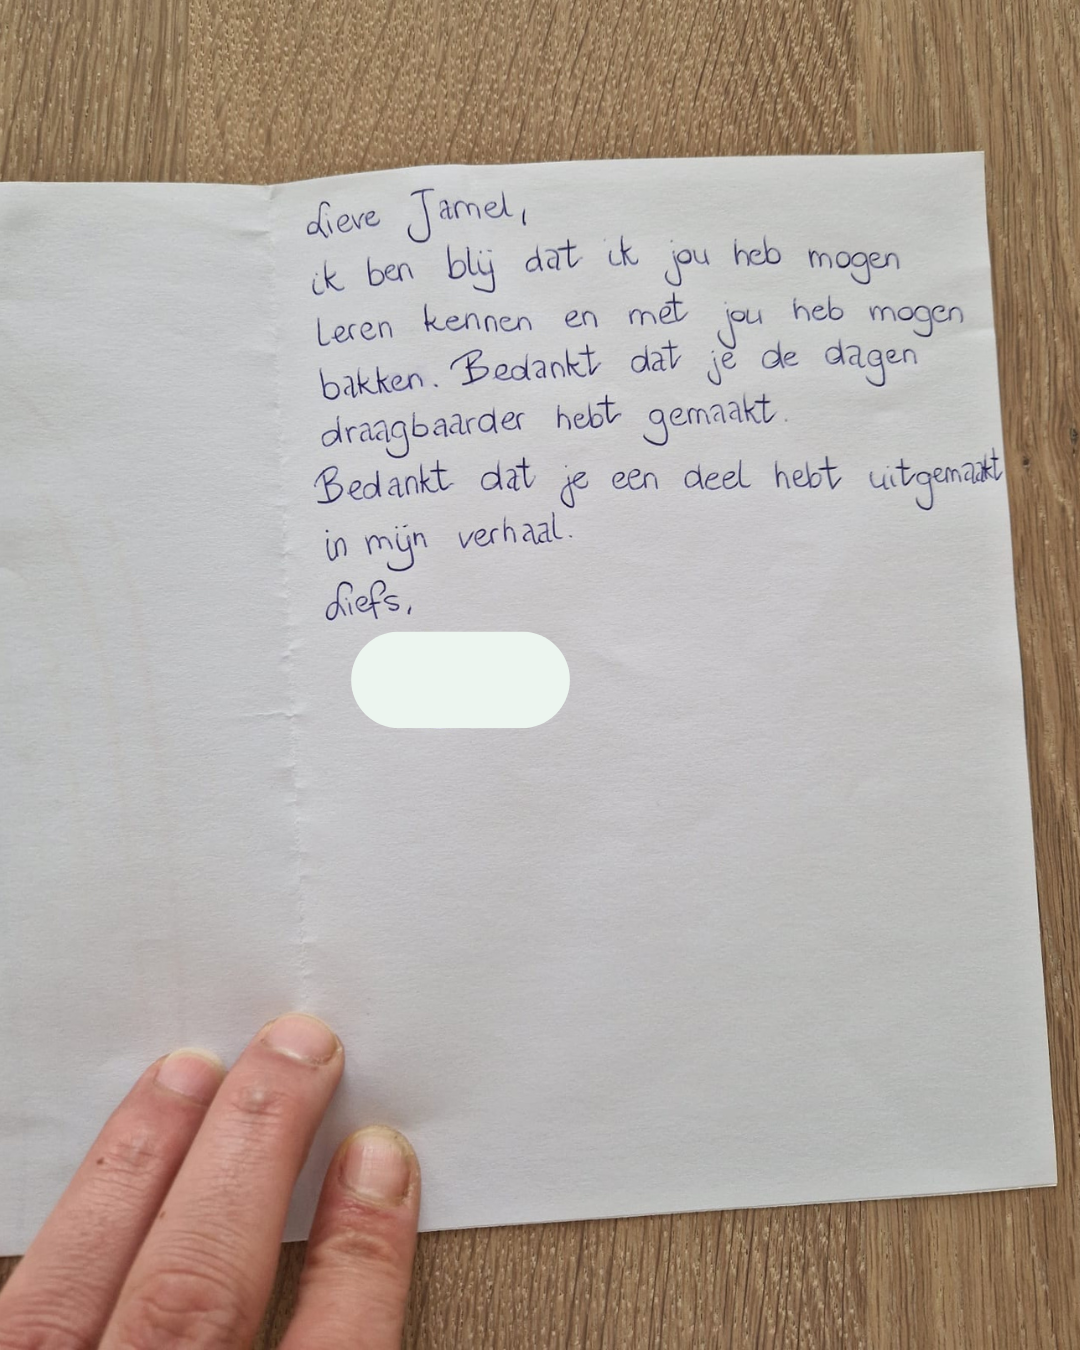 Lieve Jamel,
ik ben blij dat ik jou heb mogen
Leren kennen en met jou heb mogen
bakken. Bedankt dat je de dagen
draagbaarder hebt gemaakt.
Bedankt dat je een deel hebt uitgemaakt
in mijn verhaal.
Liefs,